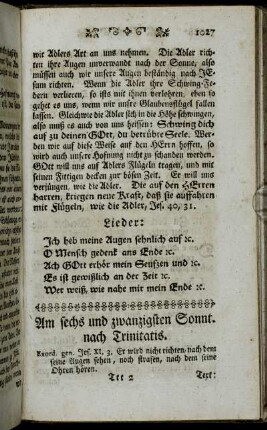 1027
wir Adlers Art an uns nehmen. Die Adler rich-
ten ihre Augen unverwandt nach der Sonne, also
müssen auch wir unsere Augen beständig nach JE-
sum richten. Wenn die Adler ihre Schwing-Fe-
dern verlieren, so ists mit ihnen verlohren, eben so
gehet es uns, wenn wir unsre Glaubensflügel fallen
lassen. Gleichwie die Adler sich in die Höhe schwingen,
also muß es auch von uns heissen: Schwing dich
auf zu deinen GOtt, du betrübte Seele. Wer-
den wir auf diese Weise auf den HErrn hoffen, so
wird auch unsere Hofnung nicht zu schanden werden.
GOtt will uns auf Adlers Flügeln tragen, und mit
seinen Fittigen decken zur bösen Zeit. Er will uns
verjüngen, wie die Adler. Die auf den HErren
harren, kriegen neue Kraft, daß sie auffahren
mit Flügeln, wie die Adler, Jes. 40, 31.
Lieder:
Ich heb meine Augen sehnlich auf ꝛc.
O Mensch gedenk ans Ende ꝛc.
Ach GOtt erhör mein Seufzen und ꝛc.
Es ist gewißlich an der Zeit ꝛc.
Wer weiß, wie nahe mir mein Ende ꝛc.
Am sechs und zwanzigsten Sonnt.
nach Trinitatis.
Exord. gen. Jes. XI, 3. Er wird nicht richten, nach dem
seine Augen sehen, noch strafen, nach dem seine
Ohren hören.
Ttt 2 Text: